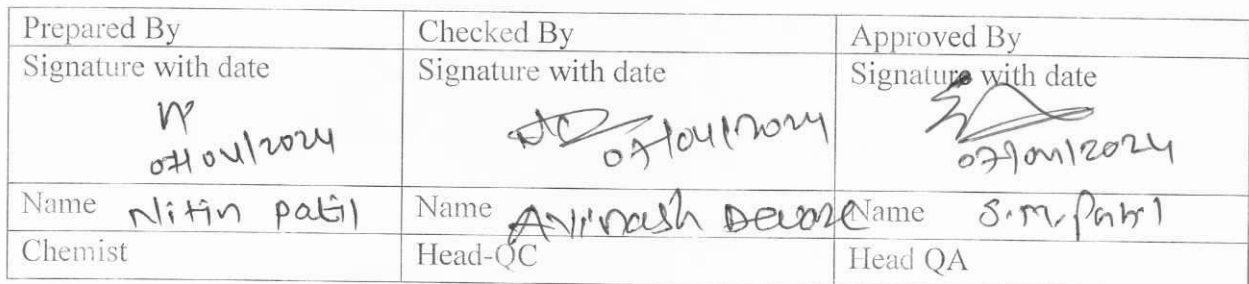 Prepared By Checked By Approved By
Signature with date Signature with date Signature with date
07/04/2024 07/04/2024 07/04/2024
Name Nitin Patil Name Avinash Deore Name S.M. Patil
Chemist Head-QC Head QA